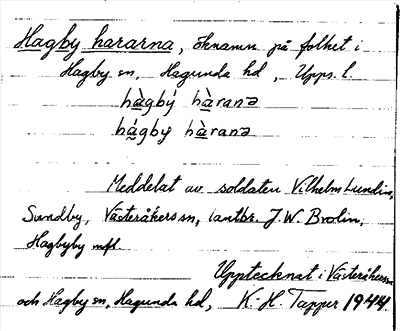 Hagby hararna, öknamn på folket i
Hagby sn, Hagunda hd, Upps. l.
hàgbý hàranə
hágby hàranə
Meddelat av soldaten Vilhelm Lundin,
Sundby, Västeråkers sn, lantbr. J.W. Brolin,
Hagbyby mfl
Upptecknat i Västeråkers sn
och Hagby sn, Hagunda hd, K-H. Tapper 1944.